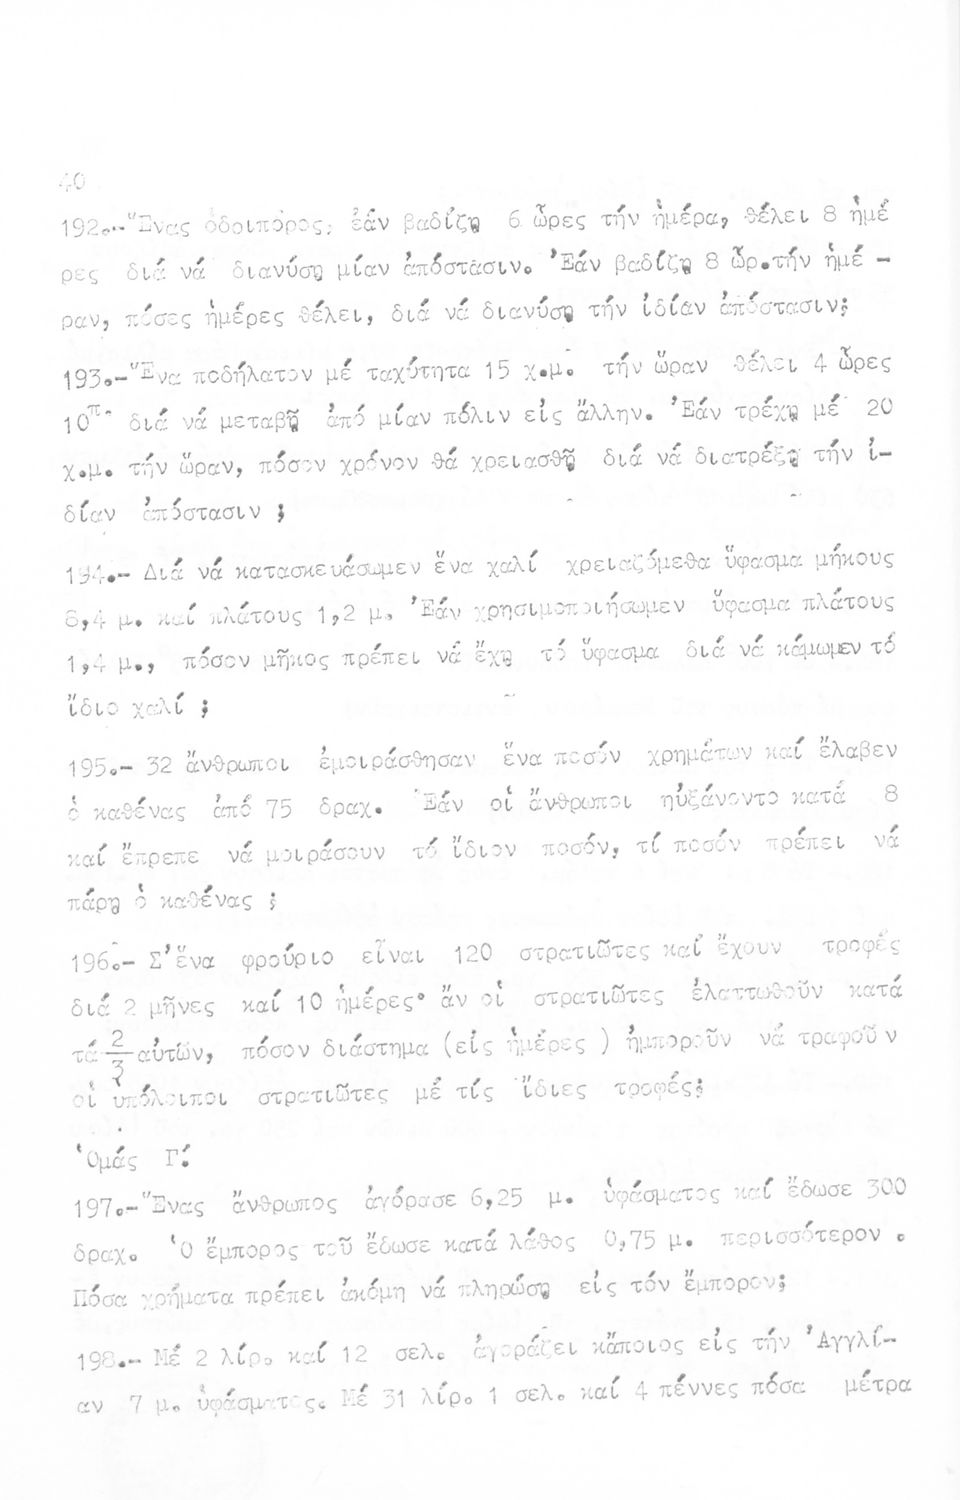 40
192.-"Ενας ὁδοιπόρος, ἐάν βαδίζῃ 6 ὧρες τήν ἡμέρα, θέλει 8 ἡμέ
ρες διά νά διανύσῃ μίαν ἀπόστασιν. Ἐάν βαδίζῃ 8 ὧρ.τήν ἡμέ -
ραν, πόσες ἡμέρες θέλει, διά νά διανύσῃ τήν ἰδίαν ἀπόστασιν;
193.-"Ενα ποδήλατον μέ ταχύτητα 15 χ.μ. τήν ὥραν θέλει 4 ὧρες
10π· διά νά μεταβῇ ἀπό μίαν πόλιν εἰς ἄλλην. Ἐάν τρέχῃ μέ 20
χ.μ. τήν ὥραν, πόσον χρόνον θά χρειασθῇ διά νά διατρέξῃ τήν ἰ-
δίαν ἀπόστασιν ;
194.- Διά νά κατασκευάσωμεν ἕνα χαλί χρειαζόμεθα ὕφασμα μήκους
8,4 μ. καί πλάτους 1,2 μ. Ἐάν χρησιμοποιήσωμεν ὕφασμα πλάτους
1,4 μ., πόσον μῆκος πρέπει νά ἔχῃ τό ὕφασμα διά νά κάμωμεν τό
ἴδιο χαλί ;
195.- 32 ἄνθρωποι ἐμοιράσθησαν ἕνα ποσόν χρημάτων καί ἔλαβεν
ὁ καθένας ἀπό 75 δραχ. Ἐάν οἱ ἄνθρωποι ηὐξάνοντο κατά 8
καί ἔπρεπε νά μοιράσουν τό ἴδιον ποσόν, τί ποσόν πρέπει νά
πάρῃ ὁ καθένας ;
196.- Σ'ἕνα φρούριο εἶναι 120 στρατιῶτες καί ἔχουν τροφές
διά 2 μῆνες καί 10 ἡμέρες· ἄν οἱ στρατιῶτες ἐλαττωθοῦν κατά
τά 2/3 αὐτῶν, πόσον διάστημα (εἰς ἡμέρες ) ἠμποροῦν νά τραφοῦν
οἱ ὑπόλοιποι στρατιῶτες μέ τίς ἴδιες τροφές;
Ὁμάς Γ΄
197.-"Ενας ἄνθρωπος ἀγόρασε 6,25 μ. ὑφάσματος καί ἔδωσε 300
δραχ. Ὁ ἔμπορος τοῦ ἔδωσε κατά λάθος 0,75 μ. περισσότερον .
Πόσα χρήματα πρέπει ἀκόμη νά πληρώσῃ εἰς τόν ἔμπορον;
198.- Μέ 2 λίρ. καί 12 σελ. ἀγοράζει κάποιος εἰς τήν Ἀγγλί-
αν 7 μ. ὑφάσματος. Μέ 31 λίρ. 1 σελ. καί 4 πέννες πόσα μέτρα